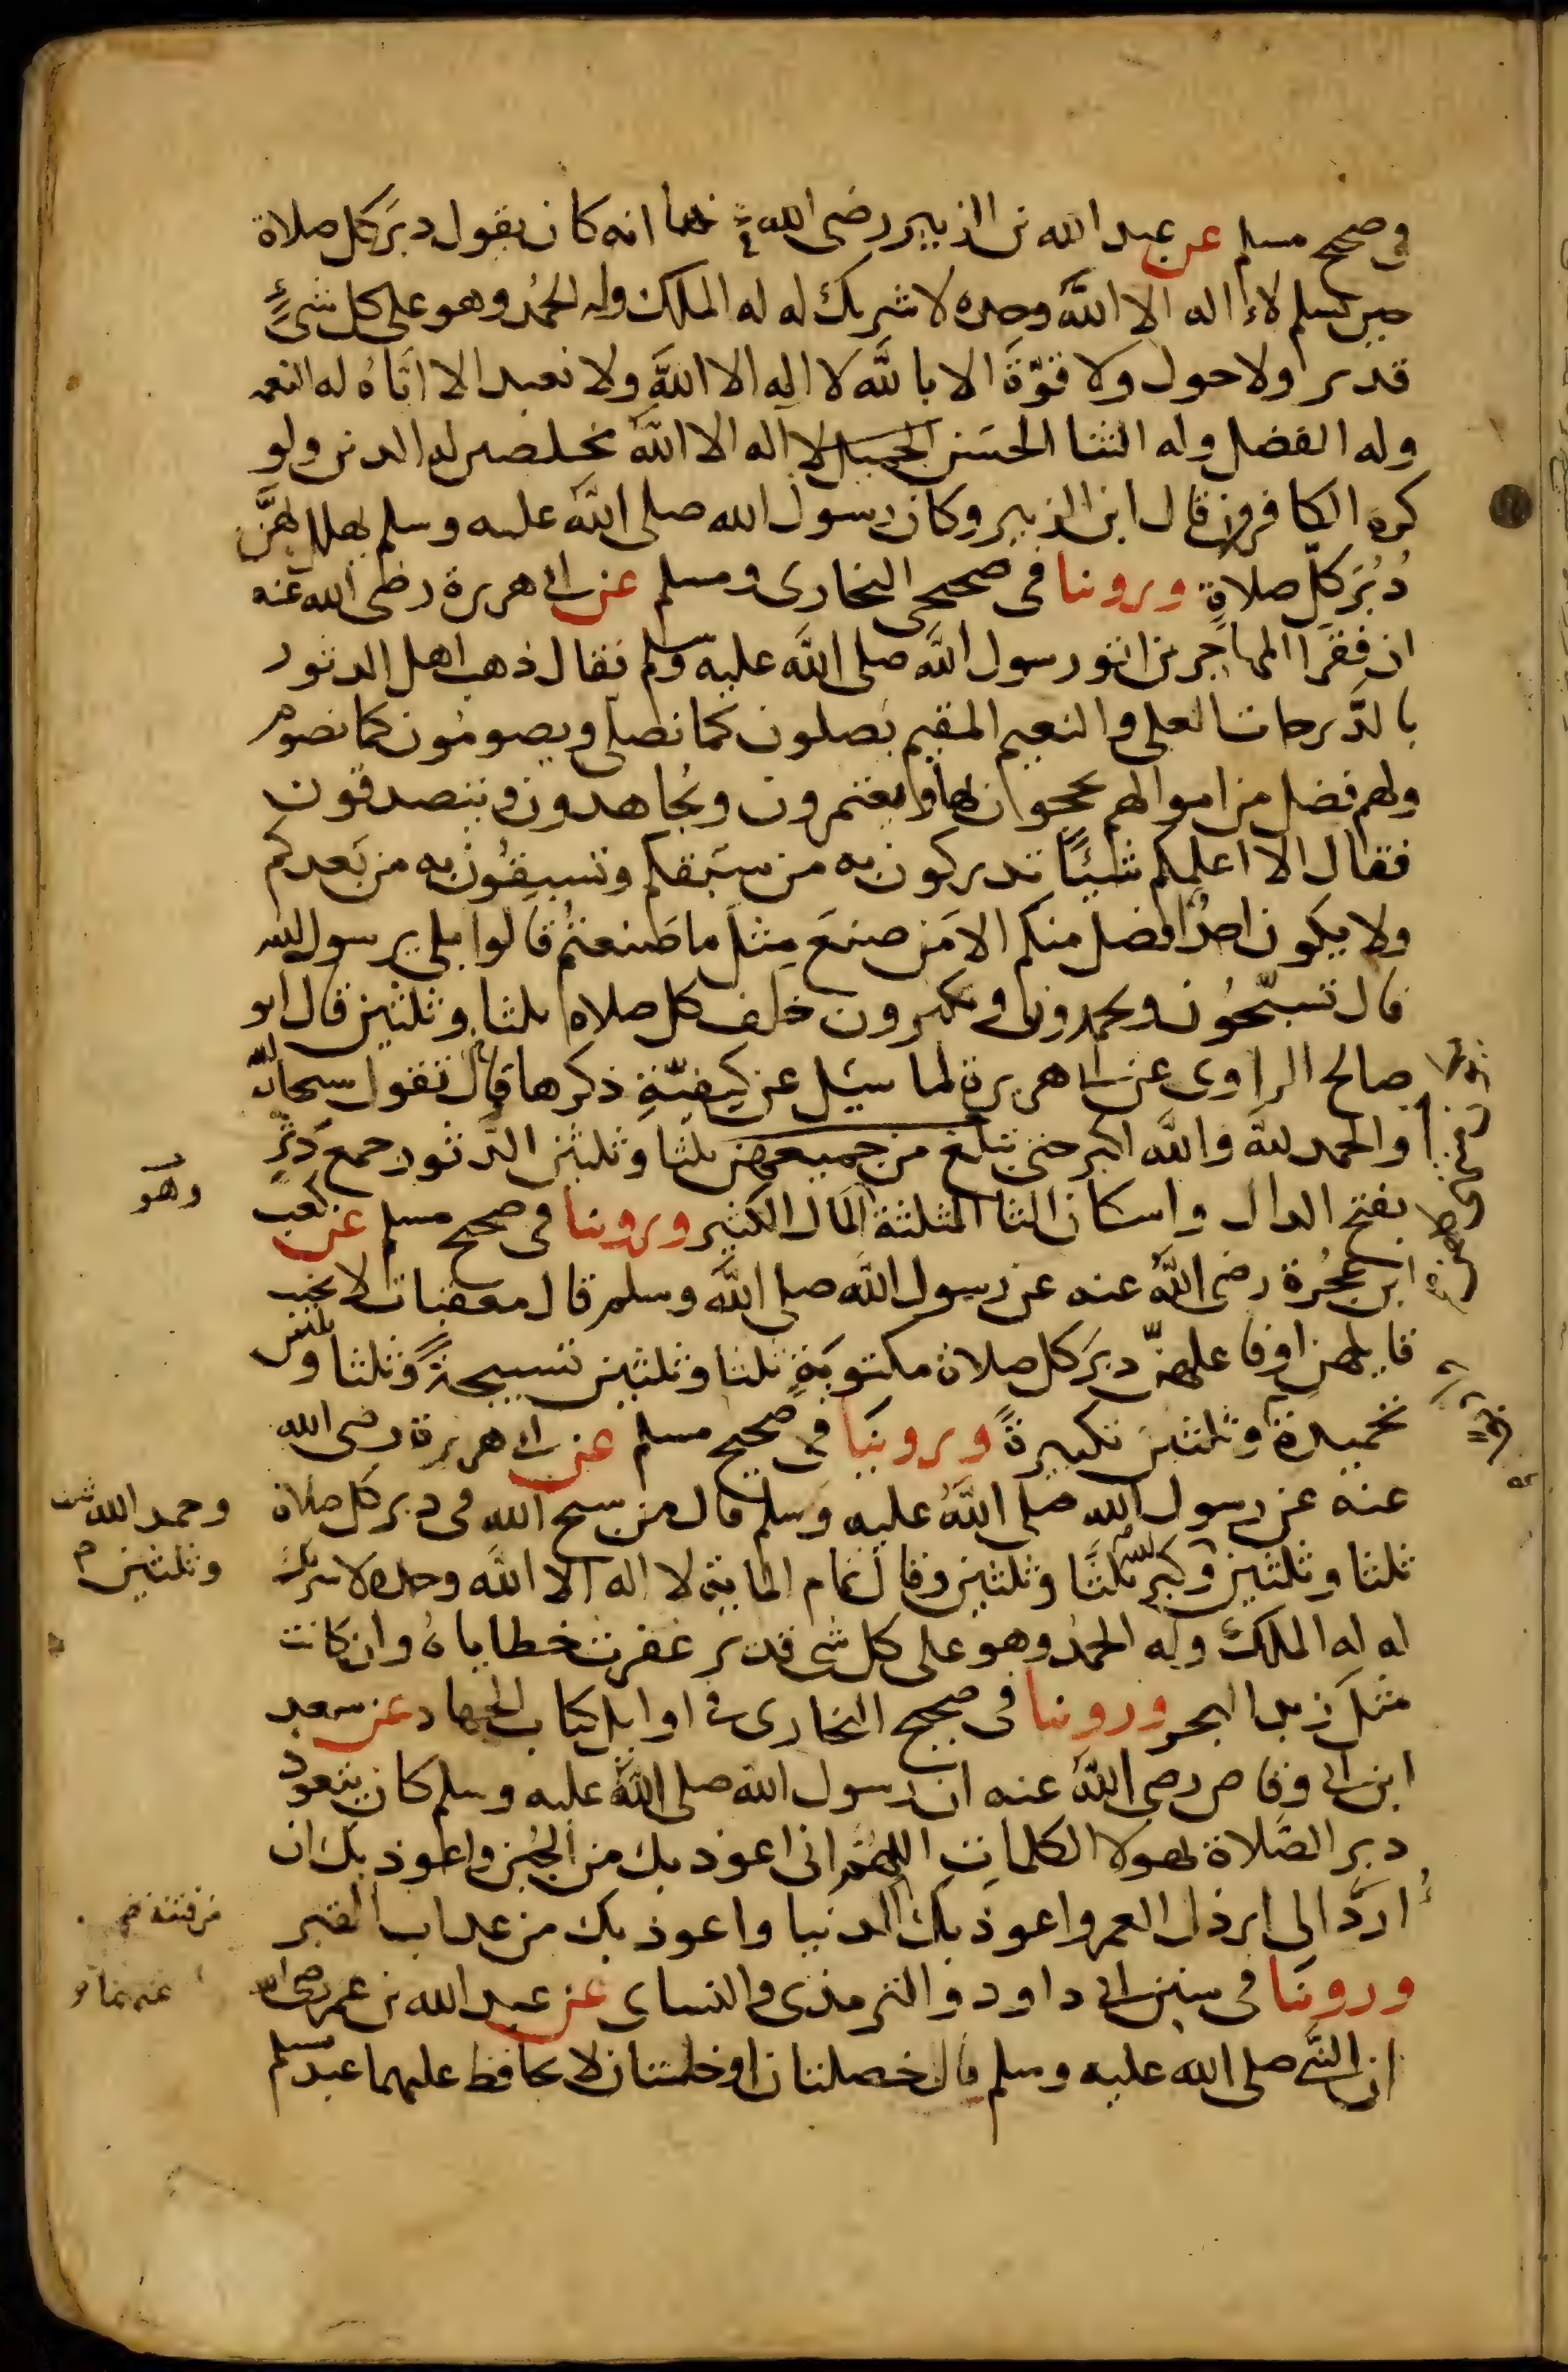 في صحيح مسلم عن عبد الله بن الزبير رضى الله عنهما انه كان يقول دبر كل صلاة
حين يسلم لا اله الا الله وحده لا شريك له له الملك وله الحمد وهو على كل شئ
قدير ولا حول ولا قوّة الا بالله لا اله الا الله ولا نعبد الا اياه له النعمة
وله الفضل وله الثنا الحسن الجميل لا اله الا الله مخلصين له الدين ولو
كره الكافرون قال ابن الزبير وكان رسول الله صلى الله عليه وسلم يهلل بهنّ
دُبُرَ كلّ صلاةٍ وروينا في صحيحي البخارى ومسلم عن ابى هريرة رضى الله عنه
ان فقرا المهاجرين اتو رسول الله صلى الله عليه وسلم فقال ذهب اهل الدثور
بالدّرجات العلى والنعيم المقيم يصلون كما نصلى ويصومون كما نصوم
ولهم فضل من اموالهم يحجوان بها ويعتمرون ويُجاهدون ويتصدقون
فقال الا اعلمكم شيئًا تدركون به من سبقكم وتسبقُون به من بعدكم
ولا يكون احدٌ افضل منكم الا من صنعَ مثلَ ما صنعتُم قالوا بلى يرسول الله
قال تسبّحُون وتحمدون وتكبرون خلف كل صلاة ثلثا وثلثين قال ابو
صالح الراوى عن ابى هريرة لما سيل عن كيفيّةِ ذكرها قال تقول سبحان الله
والحمد لله والله اكبر حتى تبلغ من جميعهن ثلثا وثلثين الدّثور جمع دَثْرٍ
وهو
بفتح الدال واسكان الثا المثلثة المال الكثير وروينا في صحيح مسلم عن كعب
ابن عُجُرة رضى الله عنه عن رسول الله صلى الله وسلم قال معقبات لا يخيب
قايلهن او فاعلهنّ دبرَ كل صلاة مكتوبةٍ ثلثا وثلثين تسبيحةً وثلثا وثلثين
تحميدة وثلثين تكبيرةً وروينا في صحيح مسلم عن ابى هريرة رضى الله
عنه عن رسول الله صلى الله عليه وسلم قال من سبح الله في دبر كل صلاة
وحمد الله ثلثا
وثلثين
ثلثا وثلثين وكبر الله ثلثًا وثلثين وقال تمام الماية لا اله الا الله وحده لا شريك
له له الملك وله الحمدُ وهو على كل شى قدير غفرت خطاياهُ وان كانت
مثل زبد البحر وروينا في صحيح البخارى في اوايل كتاب الجهاد عن سعد
ابن ابى وقاص رضى الله عنه ان رسول الله صلى الله عليه وسلم كان يتعوذ
دبر الصّلاة بهولا الكلماتِ اللهُمّ انى اعوذ بك من الجُبن واعوذ بك ان
أردّ الى ارذل العمر واعوذ بك الدنيا واعوذ بك من عذاب القبر
من فتنة
وروينا في سنن ابى داود والترمذى والنساى عن عبد الله بن عمر رضى الله
عنهما
ان النبي صلى الله عليه وسلم قال خصلتان او خلتان لا يحافظ عليهما عبد مسلم